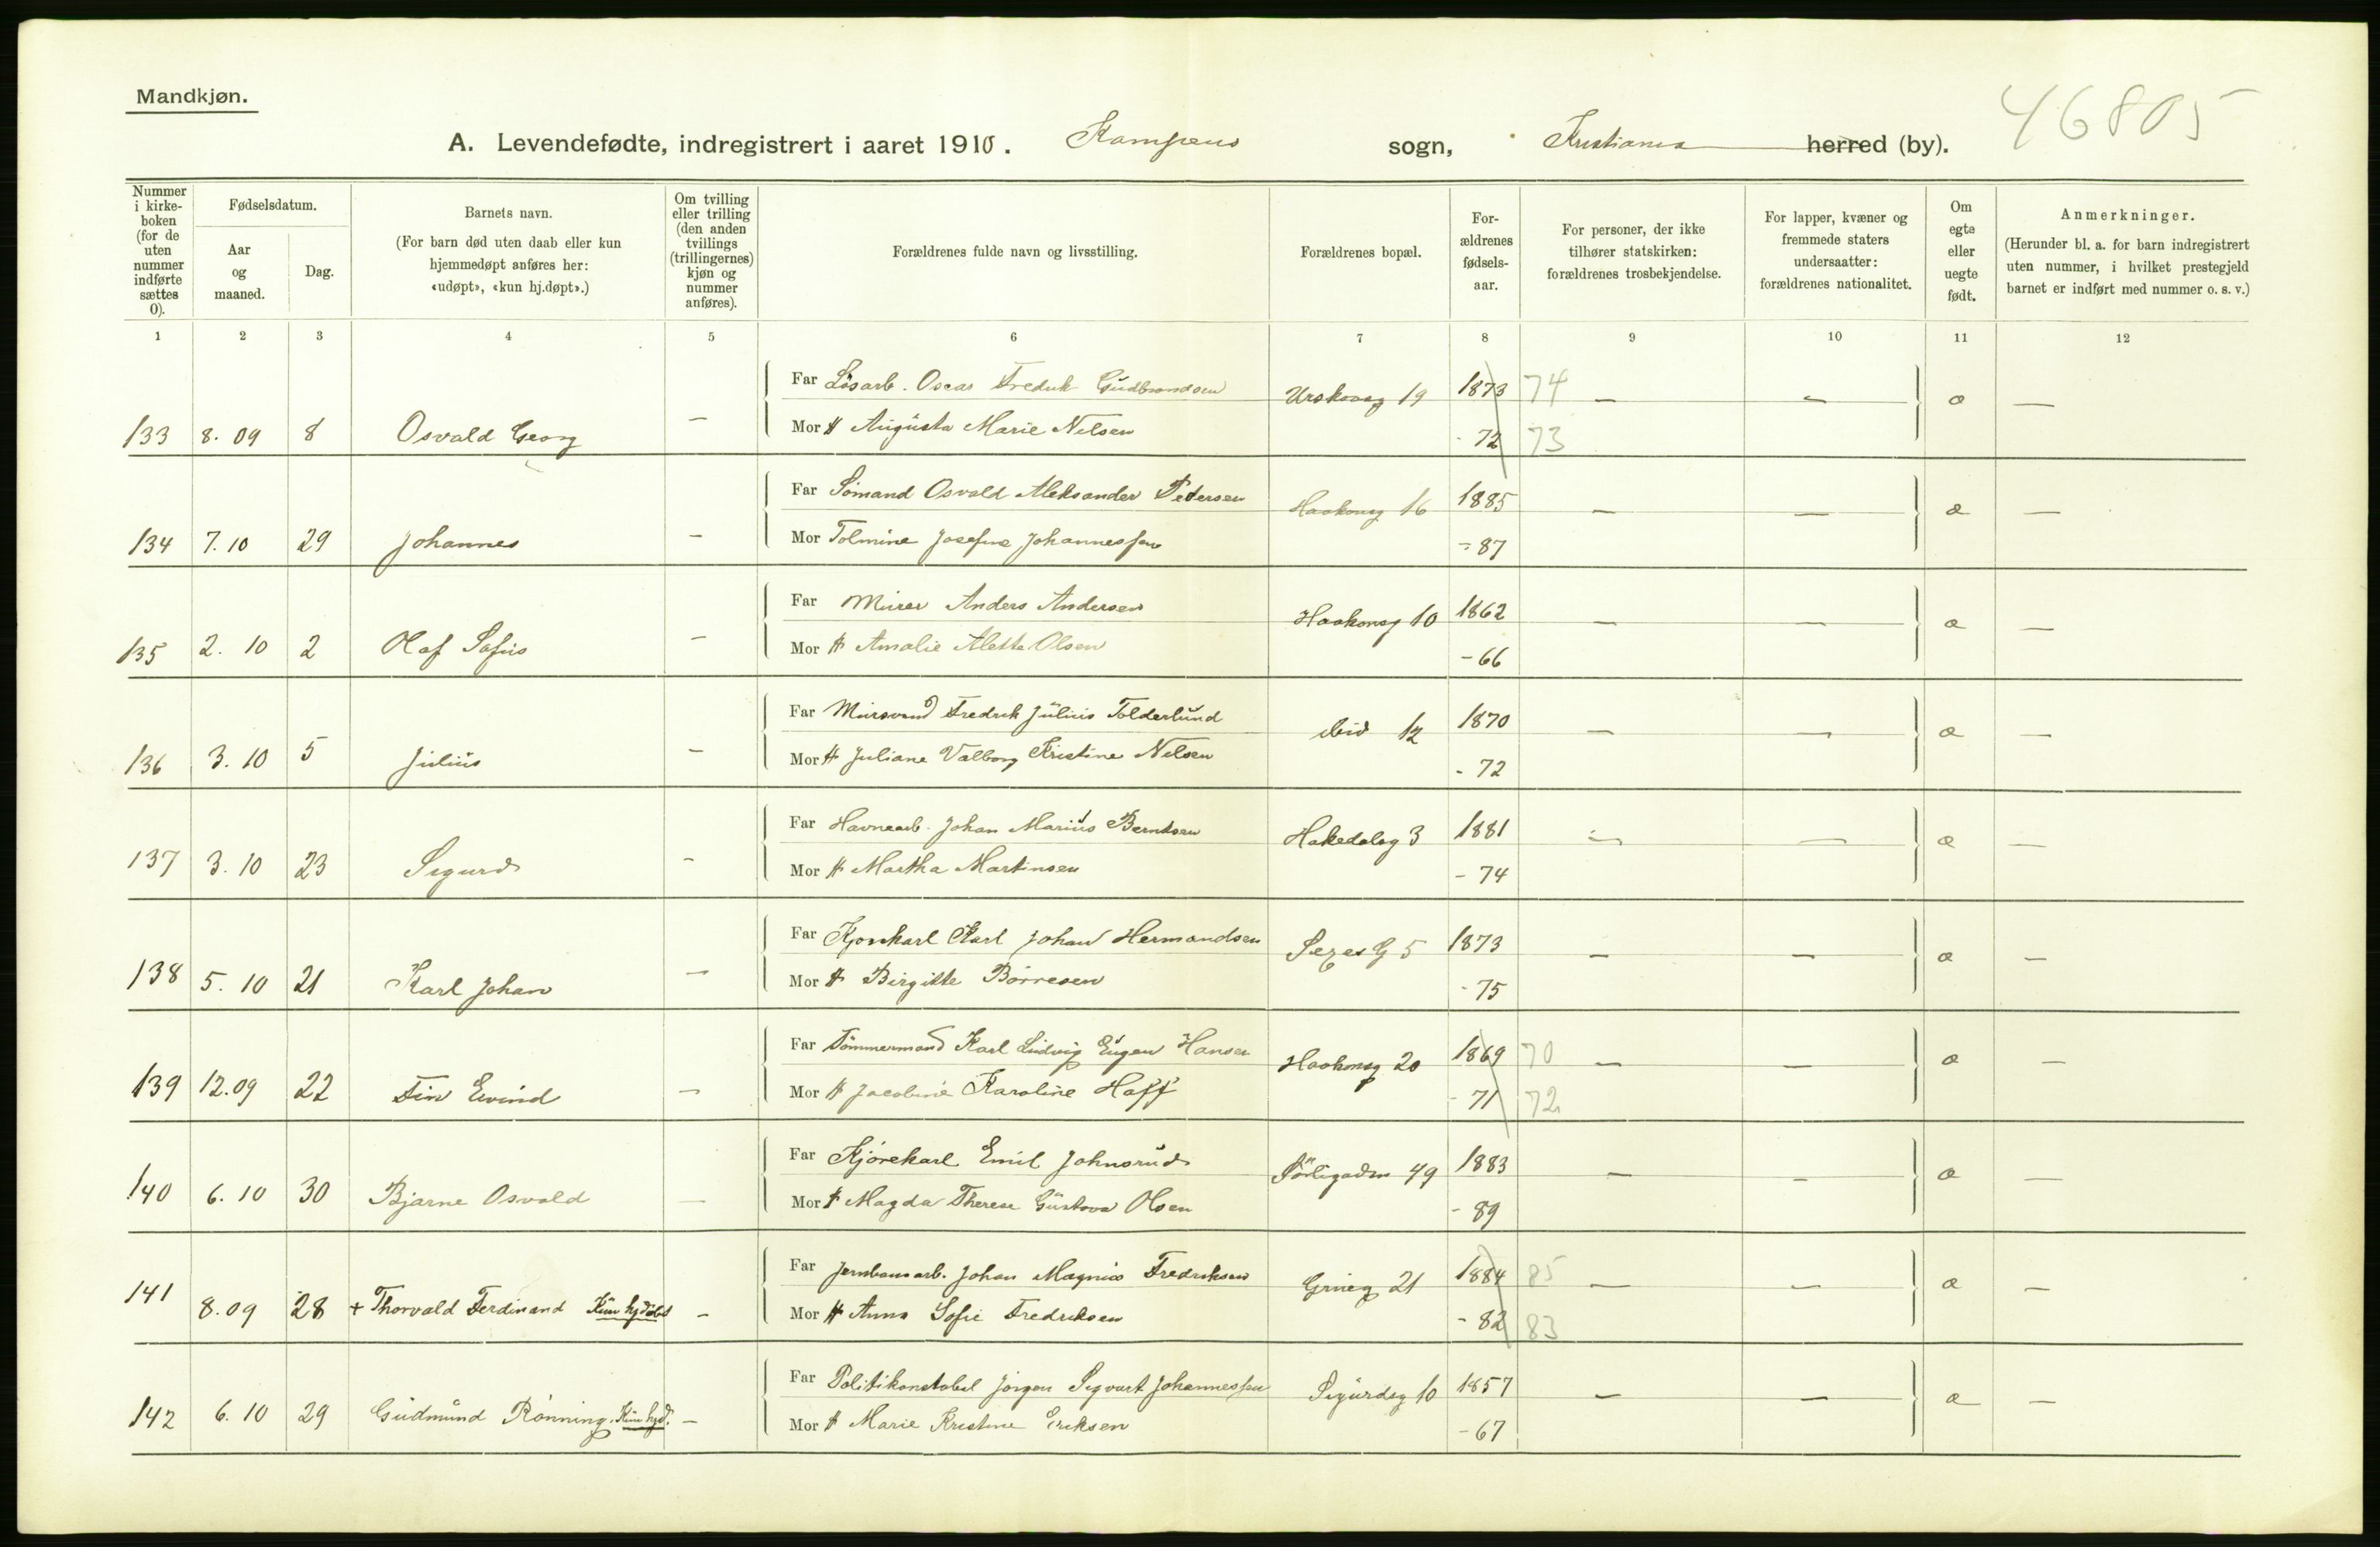 Mandkjøn.
46805
A. Levendefødte, indregistrert i aaret 1910. Kampens sogn, Kristiania herred (by).
Nummer i kirke-boken (for de uten nummer indførte sættes 0).
Fødselsdatum.
Aar og maaned.
Dag.
Barnets navn.
(For barn død uten daab eller kun hjemmedøpt anføres her: «udøpt», «kun hj.døpt».)
Om tvilling eller trilling (den anden tvillings (trillingernes) kjøn og nummer anføres).
Forældrenes fulde navn og livsstilling.
Forældrenes bopæl.
For-ældrenes fødsels-aar.
For personer, der ikke tilhører statskirken: forældrenes trosbekjendelse.
For lapper, kvæner og fremmede staters undersaatter: forældrenes nationalitet.
Om egte eller uegte født.
Anmerkninger.
(Herunder bl. a. for barn indregistrert uten nummer, i hvilket prestegjeld barnet er indført med nummer o. s. v.)
1 2 3 4 5 6 7 8 9 10 11 12
Far Løsarb. Oscar Fredrik Gudbrandsen Urskovsg 19 1873 74
133 8. 09 8 Osvald Georg — Mor H Augusta Marie Nilsen - 72 73 — — æ —
Far Sömand Osvald Aleksander Petersen Haakonsg 16 1885
134 7. 10 29 Johannes — Mor Tolmine Josefine Johannessen - 87 — — æ —
Far Murer Anders Andersen Haakonsg 10 1862
135 2. 10 2 Olaf Sofus — Mor H Amalie Alette Olsen - 66 — — æ —
Far Mursvend Fredrik Julius Tolderlund ibid 12 1870
136 3. 10 5 Julius — Mor H Juliane Valborg Kristine Nilsen - 72 — — æ —
Far Havnearb. Johan Marius Berntsen Hakedalsg 3 1881
137 3. 10 23 Sigurd — Mor H Martha Martinsen - 74 — — æ —
Far Kjørekarl Karl Johan Hermandsen 5 1873
138 5. 10 21 Karl Johan — Mor H Birgitte Börresen - 75 — — æ —
Far Tömmermand Karl Ludvig Eugen Hansen Haakonsg 20 1869 70
139 12. 09 22 Fin Eivind — Mor H Jacobine Karoline Haff - 71 72 — — æ —
Far Kjörekarl Emil Johnsrud Sörligaden 49 1883
140 6. 10 30 Bjarne Osvald — Mor H Magda Therese Gustava Olsen - 89 — — æ —
Far Jernbanearb. Johan Magnus Fredriksen Grüneg 21 1884 85
141 8. 09 28 + Thorvald Ferdinand Kun hjdöbt — Mor H Anna Sofie Fredriksen - 82 83 — — æ —
Far Politikonstabel Jörgen Sigvart Johannessen Sigurdsg 10 1857
142 6. 10 29 Gudmund Rönning. Kun hjd. — Mor H Marie Kristine Eriksen - 67 — — æ —